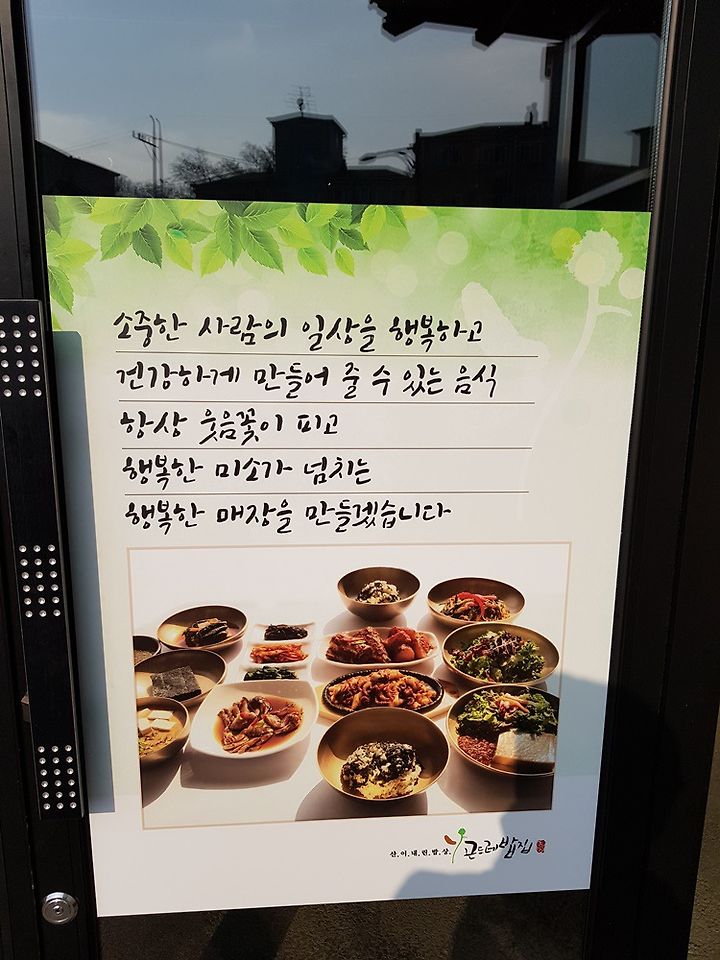 소중한 사람의 일상을 행복하고
건강하게 만들어 줄 수 있는 음식
항상 웃음꽃이 피고
행복한 미소가 넘치는
행복한 매장을 만들겠습니다
산.이.내.린.밥.상. 곤드레밥집